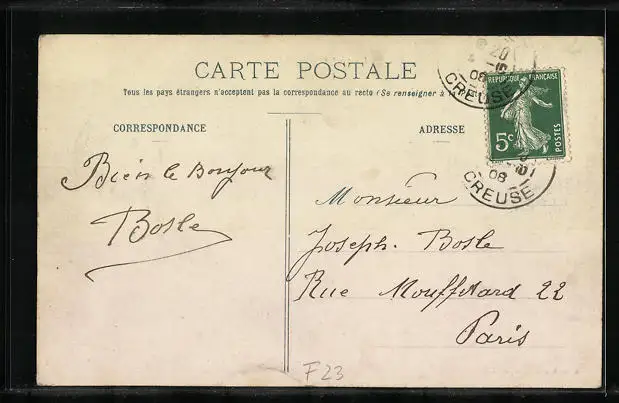 CARTE POSTALE
Tous les pays étrangers n'acceptent pas la correspondance au recto (Se renseigner à la
CORRESPONDANCE
ADRESSE
RÉPUBLIQUE FRANÇAISE
5c
POSTES
08
CREUSE
08
CREUSE
Bien le Bonjour
Bosle
Monsieur
Joseph. Bosle
Rue Mouffetard 22
Paris
F23